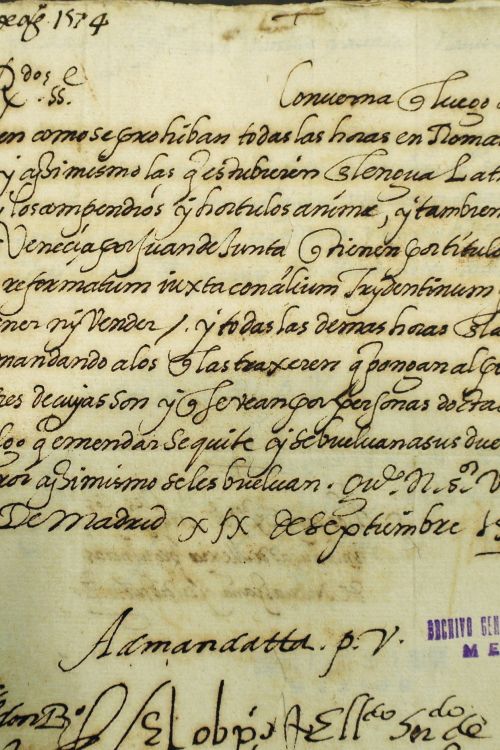 de ag.º 1574
R.dos SS.es
Conuerna q luego
en como se prohiban todas las horas en Roma
y assimismo las q estubieren Lengua Lat
y los compendios y hortulos anime, y tambien
Venecia por Juan de Junta q tienen por titulo
reformatum iuxta concilium Trydentinum
ner ny Vender /. y todas las demas horas
mandando a los q las traxeren q pongan al pr
res de cuyas son y q se vean por personas doctas
lgo q emendar se quite y se bueluan a sus due
ror assimismo se les bueluan. Gu.de N. s.or V
De Madrid XIX de Septiembre 15
Ad mandatta. p. V.
ARCHIVO GEN
ME
don B.o
El obpo